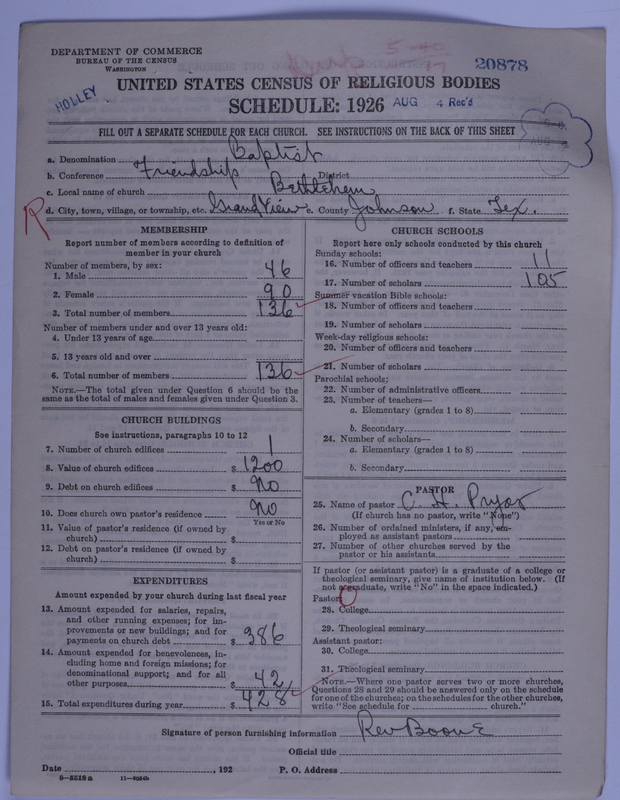 DEPARTMENT OF COMMERCE
BUREAU OF THE CENSUS
WASHINGTON
5-40
17
20878
UNITED STATES CENSUS OF RELIGIOUS BODIES
HOLLEY
SCHEDULE: 1926 AUG 4 Rec'd
FILL OUT A SEPARATE SCHEDULE FOR EACH CHURCH. SEE INSTRUCTIONS ON THE BACK OF THIS SHEET
a. Denomination Baptist
b. Conference Friendship District
c. Local name of church Bethlehem
R d. City, town, village, or township, etc. Grand View e. County Johnson f. State Tex.
MEMBERSHIP
Report number of members according to definition of
member in your church
Number of members, by sex:
1. Male 46
2. Female 90
3. Total number of members 136
Number of members under and over 13 years old:
4. Under 13 years of age
5. 13 years old and over
6. Total number of members 136
NOTE.—The total given under Question 6 should be the
same as the total of males and females given under Question 3.
CHURCH BUILDINGS
See instructions, paragraphs 10 to 12
7. Number of church edifices 1
8. Value of church edifices $ 1200
9. Debt on church edifices $ No
10. Does church own pastor's residence No
Yes or No
11. Value of pastor's residence (if owned by
church) $
12. Debt on pastor's residence (if owned by
church) $
EXPENDITURES
Amount expended by your church during last fiscal year
13. Amount expended for salaries, repairs,
and other running expenses; for im-
provements or new buildings; and for
payments on church debt $ 386
14. Amount expended for benevolences, in-
cluding home and foreign missions; for
denominational support; and for all
other purposes $ 42
15. Total expenditures during year $ 428
CHURCH SCHOOLS
Report here only schools conducted by this church
Sunday schools:
16. Number of officers and teachers 11
17. Number of scholars 105
Summer vacation Bible schools:
18. Number of officers and teachers
19. Number of scholars
Week-day religious schools:
20. Number of officers and teachers
21. Number of scholars
Parochial schools:
22. Number of administrative officers
23. Number of teachers—
a. Elementary (grades 1 to 8)
b. Secondary
24. Number of scholars—
a. Elementary (grades 1 to 8)
b. Secondary
PASTOR
25. Name of pastor C. H. Pryor
(If church has no pastor, write "None")
26. Number of ordained ministers, if any, em-
ployed as assistant pastors
27. Number of other churches served by the
pastor or his assistants
If pastor (or assistant pastor) is a graduate of a college or
theological seminary, give name of institution below. (If
not a graduate, write "No" in the space indicated.)
Pastor:
28. College
29. Theological seminary
Assistant pastor:
30. College
31. Theological seminary
NOTE.—Where one pastor serves two or more churches,
Questions 28 and 29 should be answered only on the schedule
for one of the churches; on the schedules for the other churches,
write "See schedule for church."
Signature of person furnishing information Rev Boone
Official title
Date , 192 P. O. Address
8-5518a 11-9054b